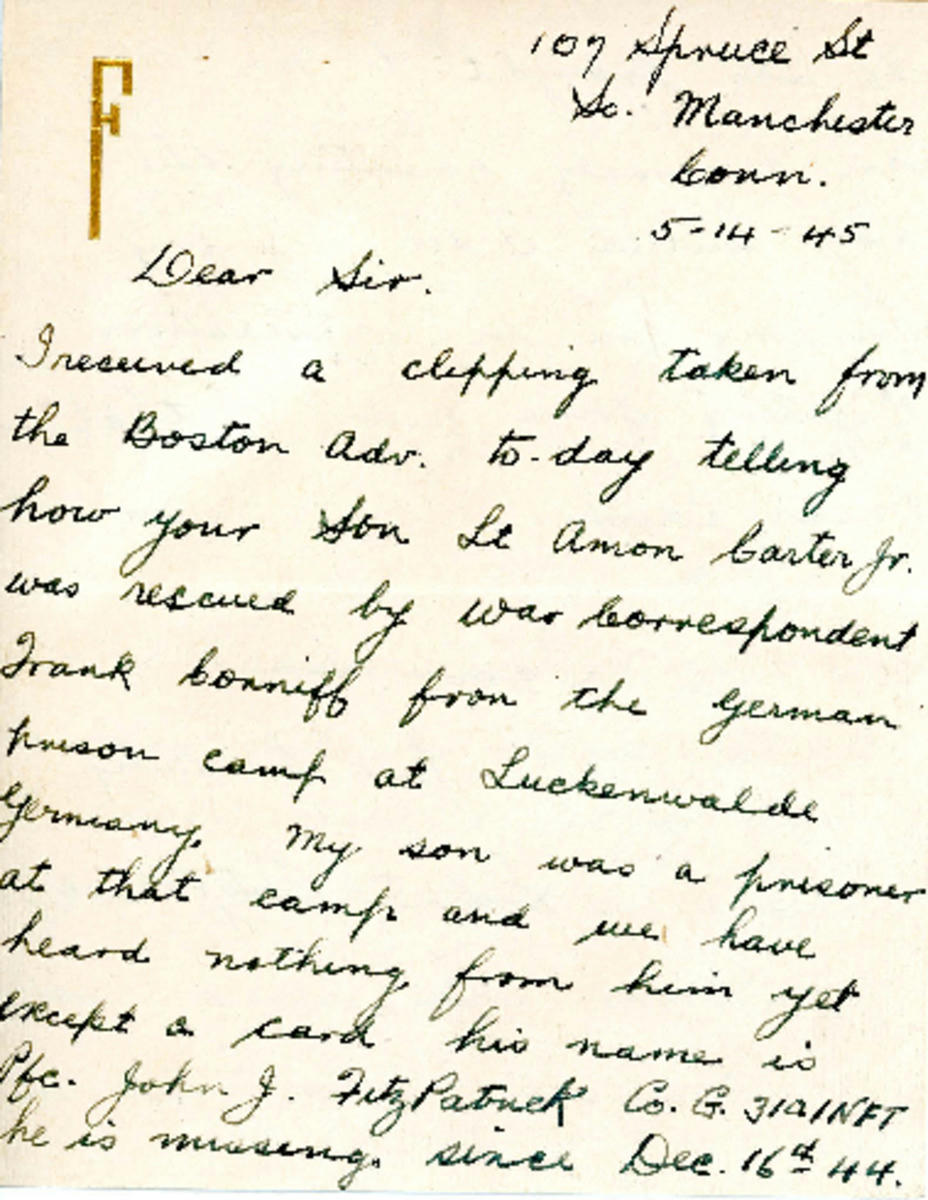 F
107 Spruce St
So. Manchester
Conn.
5-14-45
Dear Sir.
I received a clipping taken from
the Boston Adv. to-day telling
how your Son Lt Amon Carter Jr.
was rescued by war Correspondent
Frank Conniff from the German
prison camp at Luckenwalde
Germany. My son was a prisoner
at that camp and we have
heard nothing from him yet
except a card his name is
Pfc. John J. FitzPatrick Co. G. INFT
he is missing. since Dec. 16th 44.